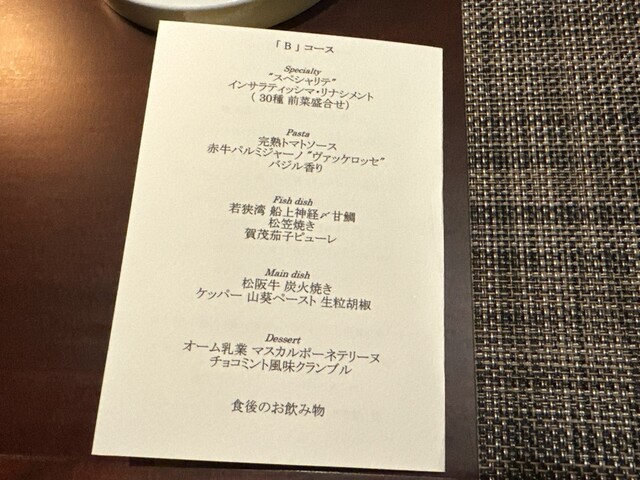 「B」コース
Specialty
"スペシャリテ"
インサラティッシマ・リナシメント
( 30種 前菜盛合せ)
Pasta
完熟トマトソース
赤牛パルミジャーノ "ヴァッケロッセ"
バジル香り
Fish dish
若狭湾 船上神経〆甘鯛
松笠焼き
賀茂茄子ピューレ
Main dish
松阪牛 炭火焼き
ケッパー 山葵ペースト 生粒胡椒
Dessert
オーム乳業 マスカルポーネテリーヌ
チョコミント風味クランブル
食後のお飲み物